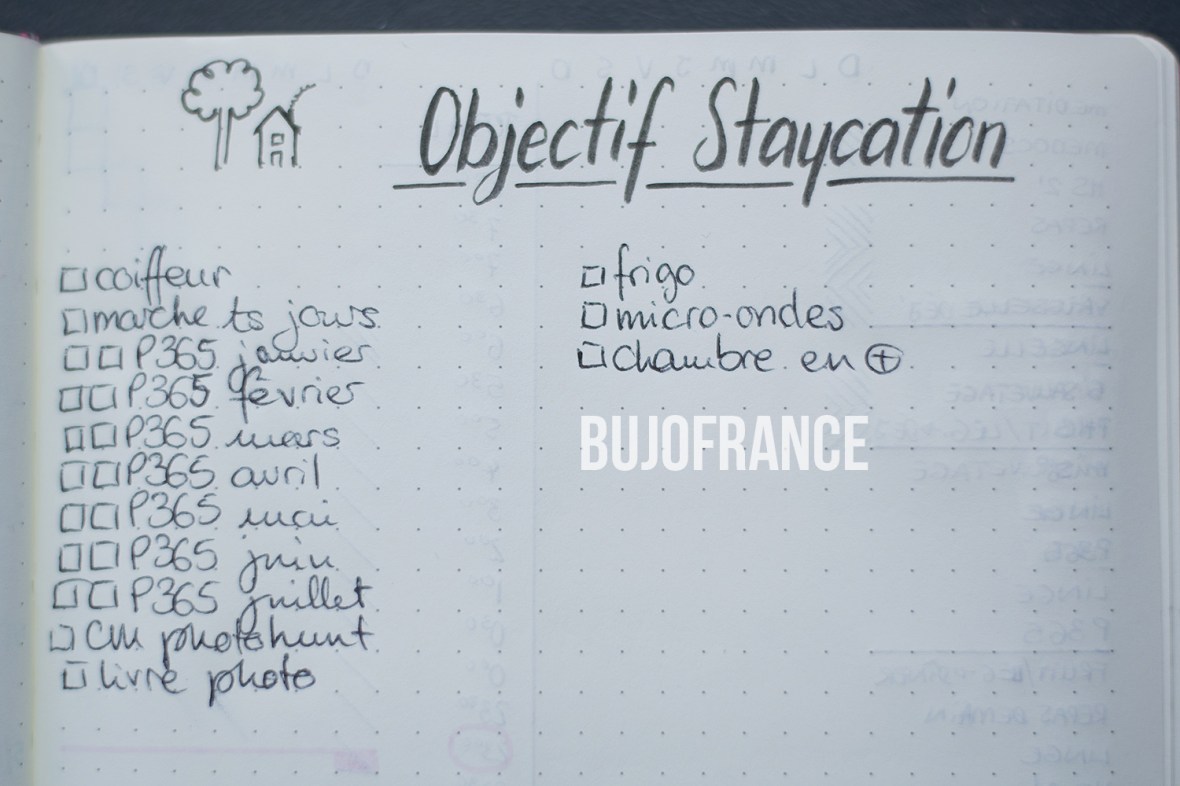 Objectif Staycation
□ coiffeur
□ marche ts jours
□ □ P365 janvier
□ □ P365 février
□ □ P365 mars
□ □ P365 avril
□ □ P365 mai
□ □ P365 juin
□ □ P365 juillet
□ CM photohunt
□ livre photo
□ frigo
□ micro-ondes
□ chambre en ⊕
BUJOFRANCE